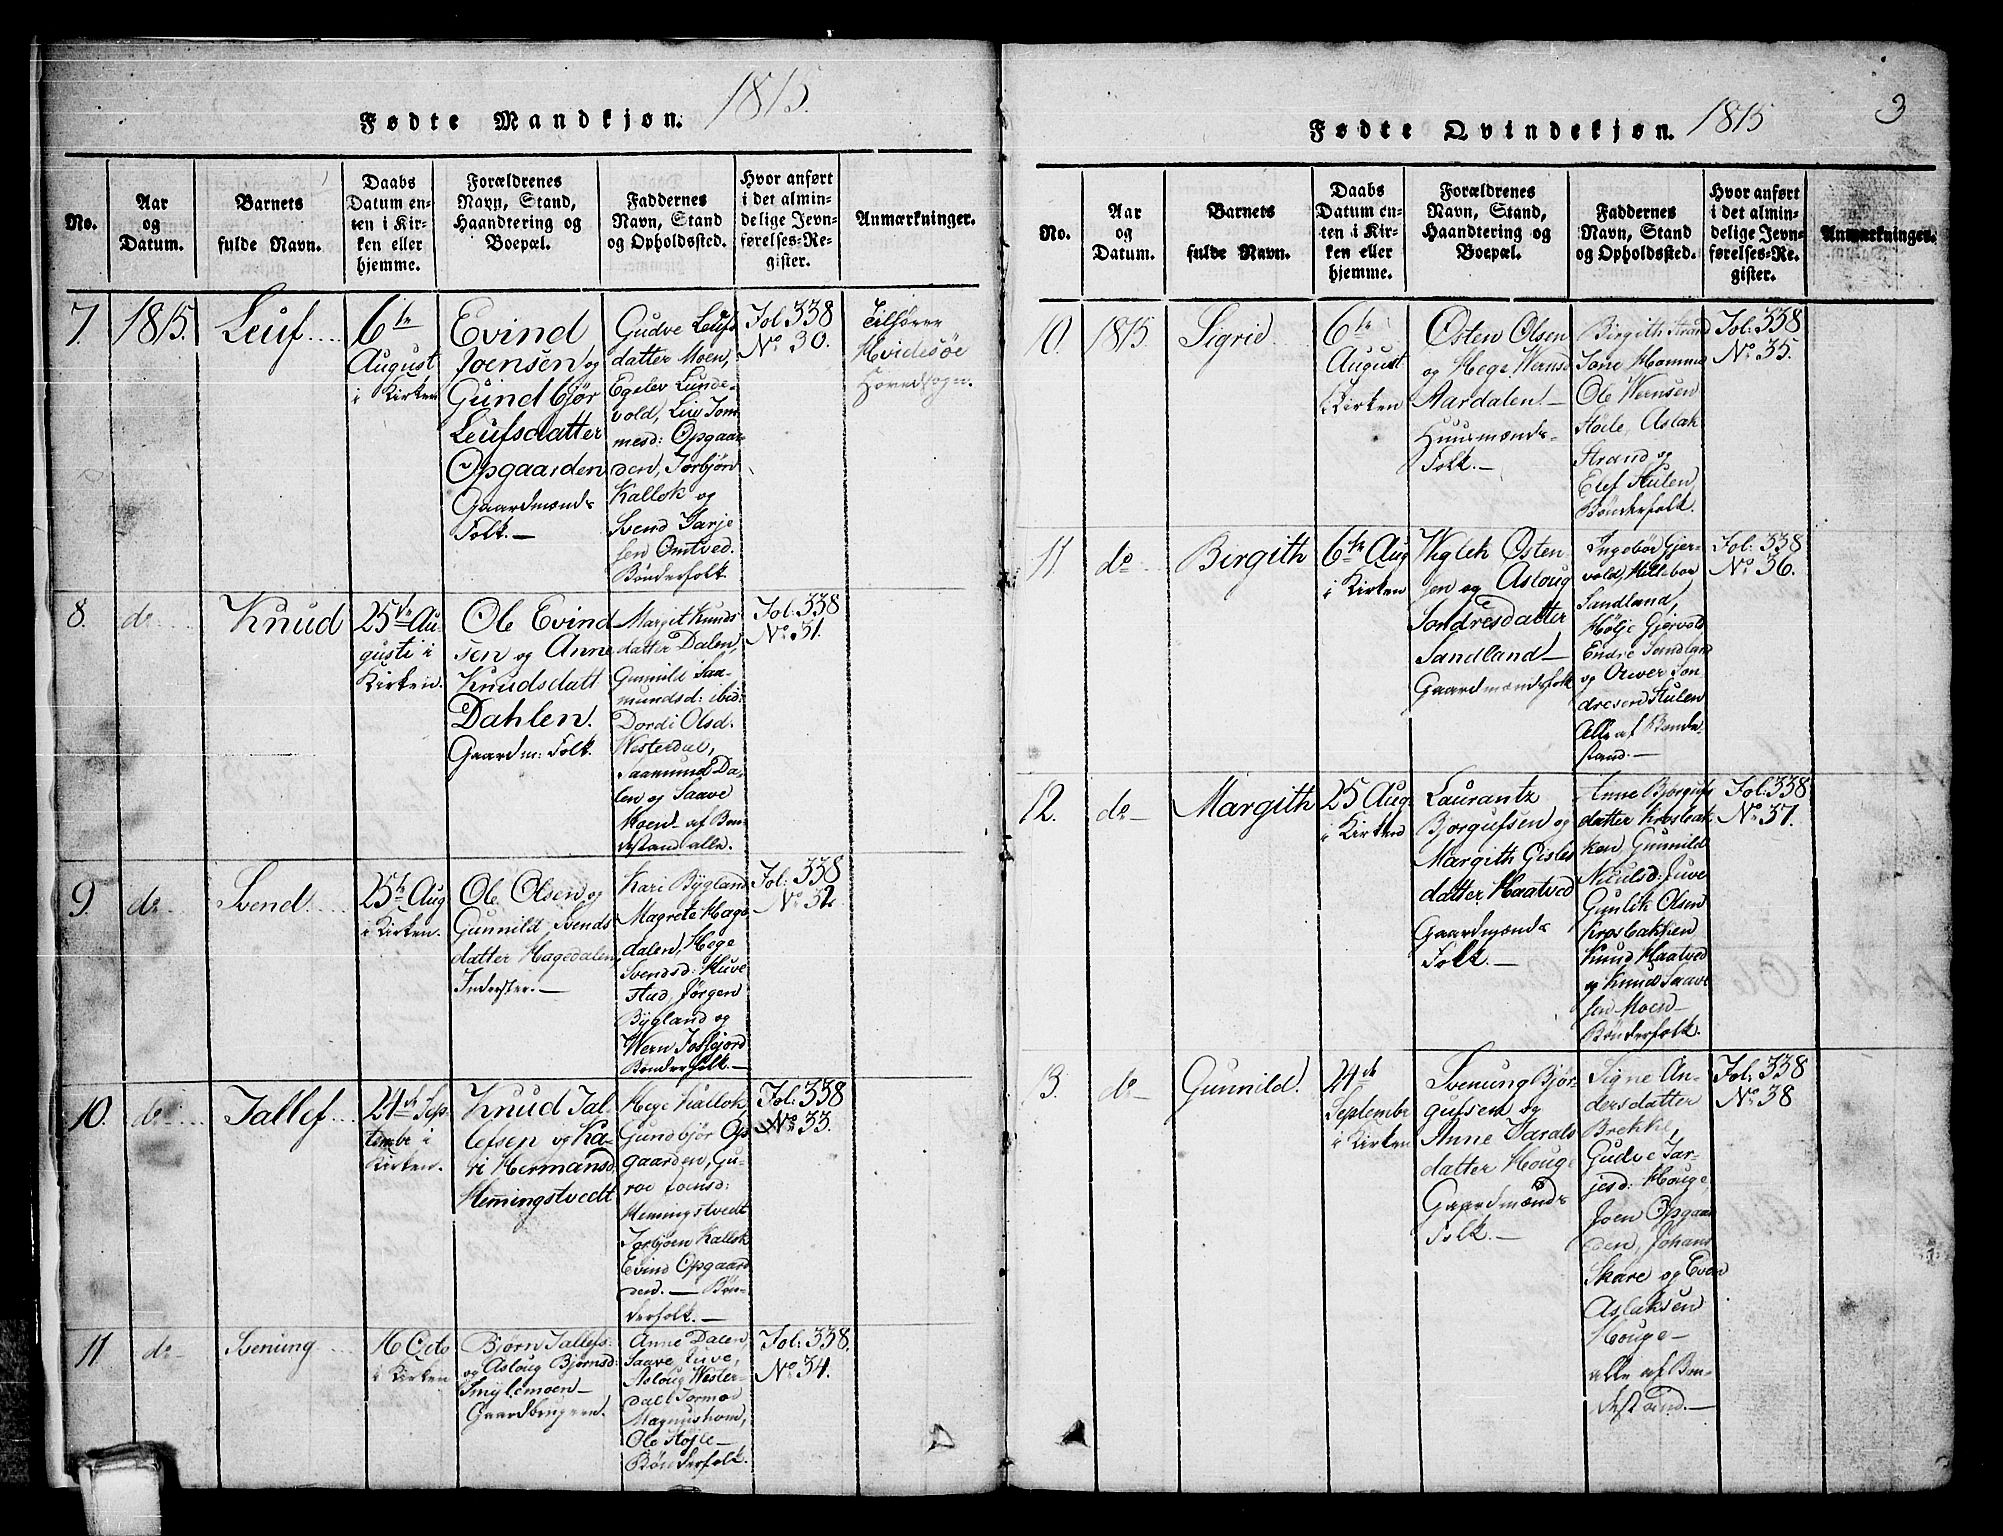 Fødte Mandkjøn. 1815.
No.
Aar
og
Datum.
Barnets
fulde Navn.
Daabs
Datum en-
ten i Kir-
ken eller
hjemme.
Forældrenes
Navn, Stand,
Haandtering og
Boepæl.
Faddernes
Navn, Stand
og Opholdssted.
Hvor anført
i det almin-
delige Jevn-
førelses-Re-
gister.
Anmærkninger.
7.
1815.
Leuf....
6te
August
i Kirken
Evind
Joensen og
Gundbjør
Leufsdatter
Opgaarden
Gaardmænds
Folk.—
Gudve Leufs
datter Moen,
Egelev Lunde-
vold, Liv Tom
mesd: Opgaar
den, Torbjøn
Kallok og
Svend Tarje
sen Omtved.
Bønderfolk
Fol 338
No 30.
Tilhører
Hvidesøe
Hovedsogn.
8.
do
Knud
25de Au-
gusti i
Kirken.
Ole Evind
sen og Anne
Knudsdatt
Dahlen.
Gaardm: Folk.
Margit Knuds
datter Dalen,
Gunnild Saa-
mundsd: ibid:
Dordi Olsd.
Westerdal,
Saamund Da-
len og Saave
Moen af Bon-
destand alle.
Fol: 338
No 31.
9.
do
Svend....
25de Aug
i Kirken.
Ole Olsen og
Gunnild Svends
datter Hagedalen,
Inderster.—
Kari Bygland
Magrete Hage
dalen, Hege
Svendsd: Huve
stad, Jørgen
Bygland og
Wern Fosfjord
Bønderfolk—
Fol: 338
No 32
10.
do
Tallef...
24de Sep
tembr i
Kirken.
Knud Tal
lefsen og Ka-
ri Hermansd
Hemingstvedt
Hege Kallok
Gundbjør Op
gaarden, Gu-
roe Joensd:
Hemingstvedt
Torbjøen Kallok
Evind Opgaar
den.— Bøn-
derfolk.—
Fol: 338
No 33.
11
do—
Svenung
16 Octo
i Kirken
Bjørn Tallefs:
og Asloug Bjørnsd:
Smylemoen—
Gaardbrugere.
Anne Dalen,
Saave Juve,
Asloug Wester-
dal Tormod
Magnushom,
Ole Støjle—
Bønderfolk.
Fol: 338.
No 34.
Fødte Qvindekjøn. 1815
3
No.
Aar
og
Datum.
Barnets
fulde Navn.
Daabs
Datum en-
ten i Kir-
ken eller
hjemme.
Forældrenes
Navn, Stand,
Haandtering og
Boepæl.
Faddernes
Navn, Stand
og Opholdssted.
Hvor anført
i det almin-
delige Jevn-
førelses-Re-
gister.
Anmærkninger.
10.
1815.
Sigrid.
6te
August
i Kirken
Østen Olsen
og Hege Wernsd
Aardalen—
Huusmænds-
Folk.—
Birgith Strand
Tone Homme
Ole Wernsen
Støile, Aslak
Strand og
Elef Stulen
Bønderfolk.
Fol: 338
No 35.
11
do
Birgith
6te Aug
i Kirken
Wiglek Østen
sen og Asloug
Sondresdatter
Sandland—
Gaardmændsfolk
Ingebor Gjer-
vold, Hellebor
Sandland,
Hølje Gjervold
Endre Sandland
og Anver Son
dresen Stulen
Alle af Bonde-
stand.—
Fol: 338
No 36.
12.
do—
Margith
25 Aug
i Kirken
Laurantz
Bjorgufsen og
Margith Gisles
datter Haatved
Gaardmænds
Folk.—
Anne Bjorgufs
datter Krosbak
ken Gunnild
Niculsd: Juve
Gunlek Olsen
Krosbakken
Knud Haatved
og Knud Saave
sen Moen—
Bønderfolk.
Fol: 338
No 37.
3.
do
Gunnild.
24de
Septembr
i Kirken
Svenung Bjør-
gufsen og
Anne Taralds
datter Houge
Gaardmænds
Folk.—
Signe An-
dersdatter
Brekke,
Gudve Tar-
jesd: Houge,
Joen Opgaar
den, Johans
Skare og Even
Aslaksen
Houge—
alle af Bon-
destand.—
Fol: 338
No 38